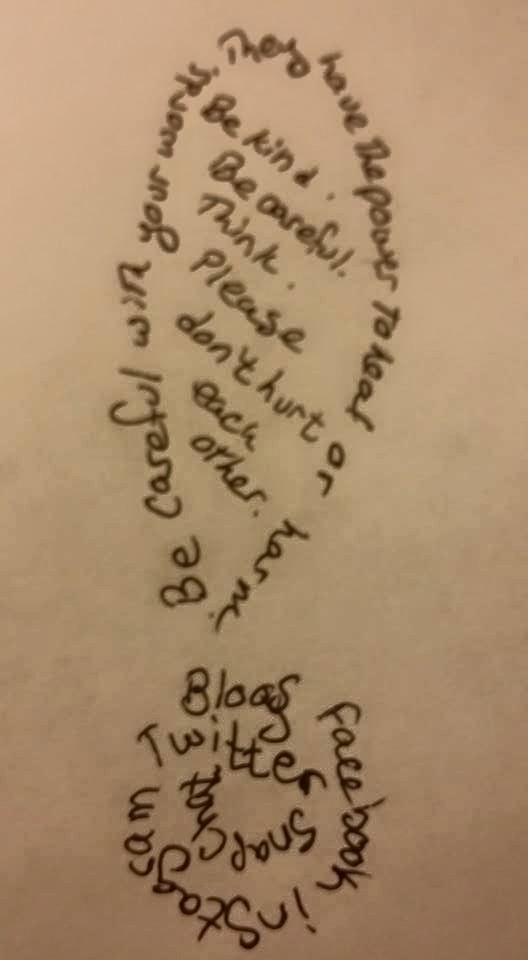 Be careful with your words. They have the power to heal or harm.
Be kind.
Be careful.
Think.
Please
don't hurt
each
other.
Facebook instagram
Twitter
snapchat